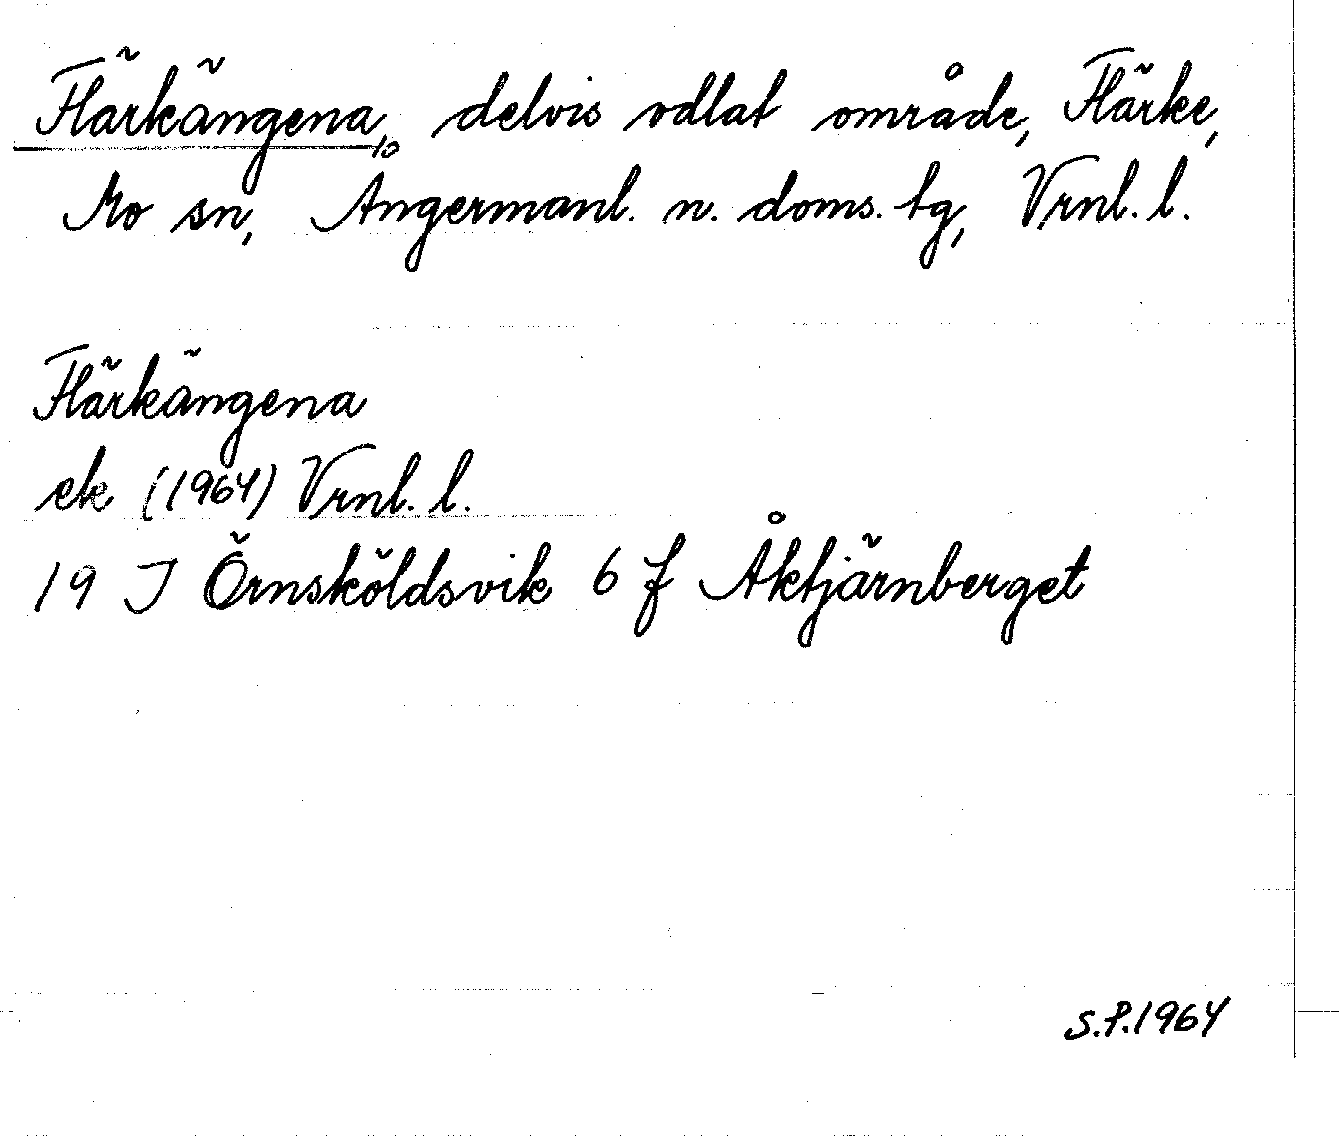 Flärkängena, delvis odlat område, Flärke,
Mo sn, Ångermanl. n. doms. tg, Vrnl. l.
Flärkängena
ek (1964) Vrnl. l.
19 J Örnsköldsvik 6 f Åktjärnberget
S.P.1964